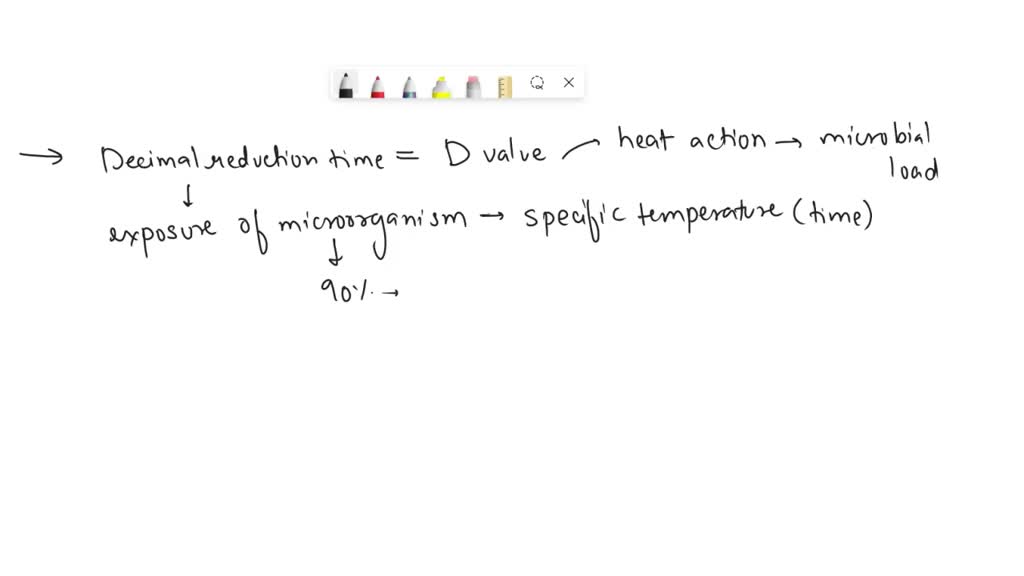 → Decimal reduction time = D value heat action → microbial
load
↓
exposure of microorganism → specific temperature (time)
↓
90% →